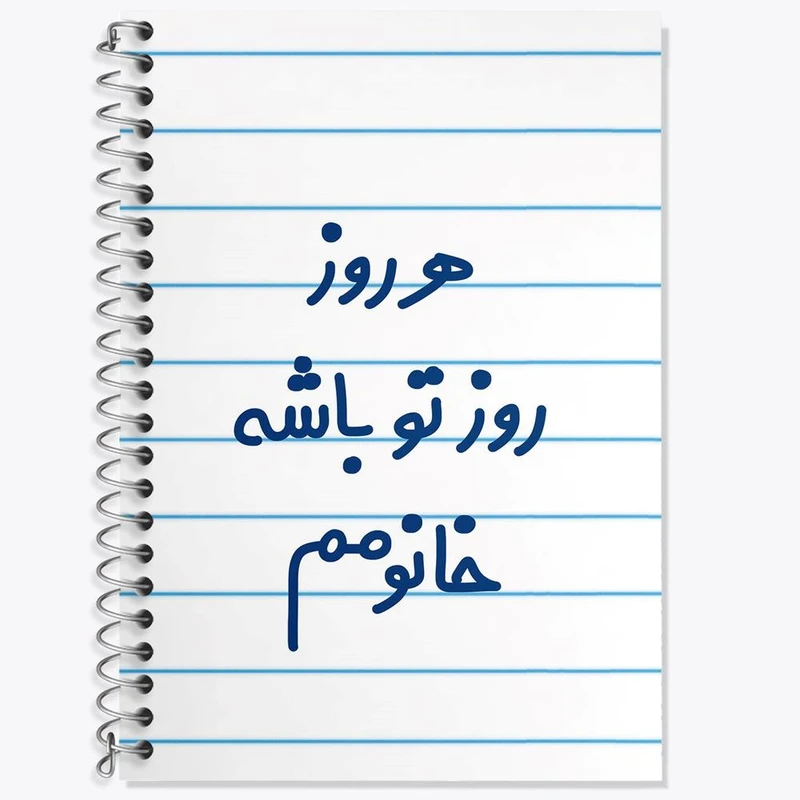 هر روز
روز تو باشه
خانومم